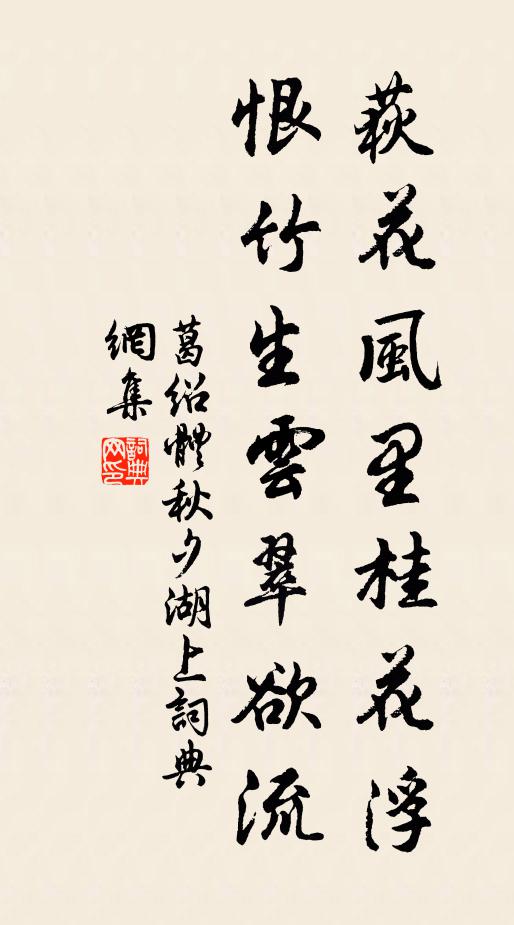 萩花風里桂花浮
恨竹生雲翠欲流
葛绍體秋夕湖上詞典
網集
詞典
网印